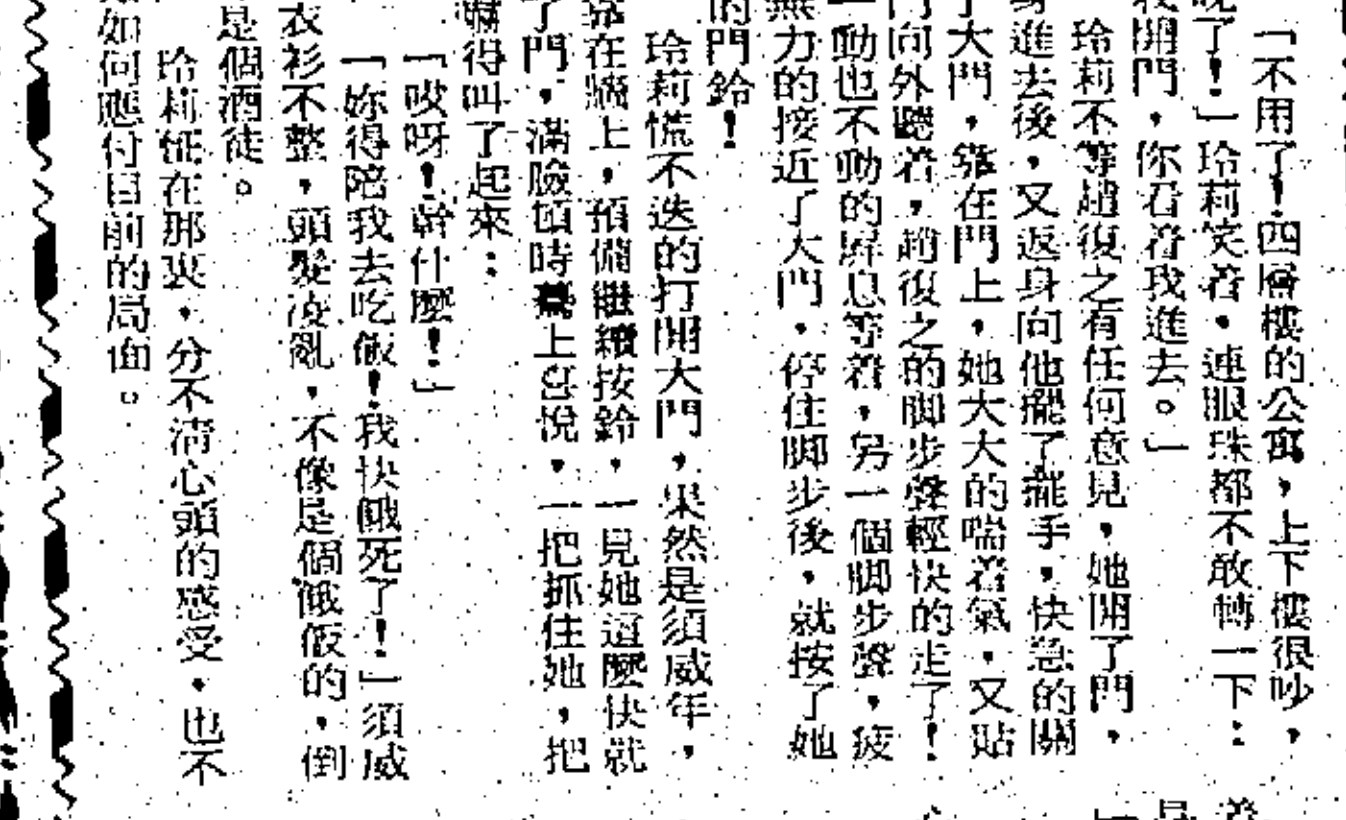 「不用了!四層樓的公寓,上下樓很吵,
晚了!」玲莉笑着,連眼珠都不敢轉一下:
我開門,你看着我進去。」
玲莉不等趙復之有任何意見,她開了門,
身進去後,又返身向他擺了擺手,快急的關
了大門,靠在門上,她大大的喘着氣,又貼
門向外聽着,趙復之的脚步聲輕快的走了!
一動也不動的屏息等着,另一個脚步聲,疲
無力的接近了大門,停住脚步後,就按了她
的門鈴!
玲莉慌不迭的打開大門,果然是須威年,
靠在牆上,預備繼續按鈴,一見她這麼快就
了門,滿臉頓時蓋上喜悅,一把抓住她,把
嚇得叫了起來:
「哎呀!幹什麼!」
「妳得陪我去吃飯!我快餓死了!」須威
衣衫不整,頭髮凌亂,不像是個餓飯的,倒
是個酒徒。
玲莉怔在那裏,分不清心頭的感受,也不
如何應付目前的局面。